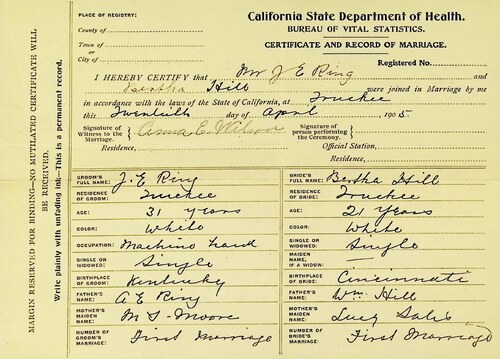 PLACE OF REGISTRY:
County of
Town of
or
City of
California State Department of Health.
BUREAU OF VITAL STATISTICS.
CERTIFICATE AND RECORD OF MARRIAGE.
Registered No.
I HEREBY CERTIFY that Mr J E Ring and
Bertha Hill were joined in Marriage by me
in accordance with the laws of the State of California, at Truckee
this Twentieth day of April 1905
Signature of Witness to the Marriage Anna E. Wilson
Signature of person performing the Ceremony.
Residence, Official Station,
Residence,
MARGIN RESERVED FOR BINDING—NO MUTILATED CERTIFICATE WILL BE RECEIVED.
Write plainly with unfading ink—This is a permanent record.
GROOM'S FULL NAME: J. E Ring
RESIDENCE OF GROOM: Truckee
AGE: 31 years
COLOR: White
OCCUPATION: Machine hand
SINGLE OR WIDOWED: Single
BIRTHPLACE OF GROOM: Kentucky
FATHER'S NAME: A E Ring
MOTHER'S MAIDEN NAME: M S Moore
NUMBER OF GROOM'S MARRIAGE: First Marriage
BRIDE'S FULL NAME: Bertha Hill
RESIDENCE OF BRIDE: Truckee
AGE: 21 Years
COLOR: White
SINGLE OR WIDOWED: Single
MAIDEN NAME, IF A WIDOW:
BIRTHPLACE OF BRIDE: Cincinnati
FATHER'S NAME: Wm Hill
MOTHER'S MAIDEN NAME: Lucy
NUMBER OF BRIDE'S MARRIAGE: First Marriage